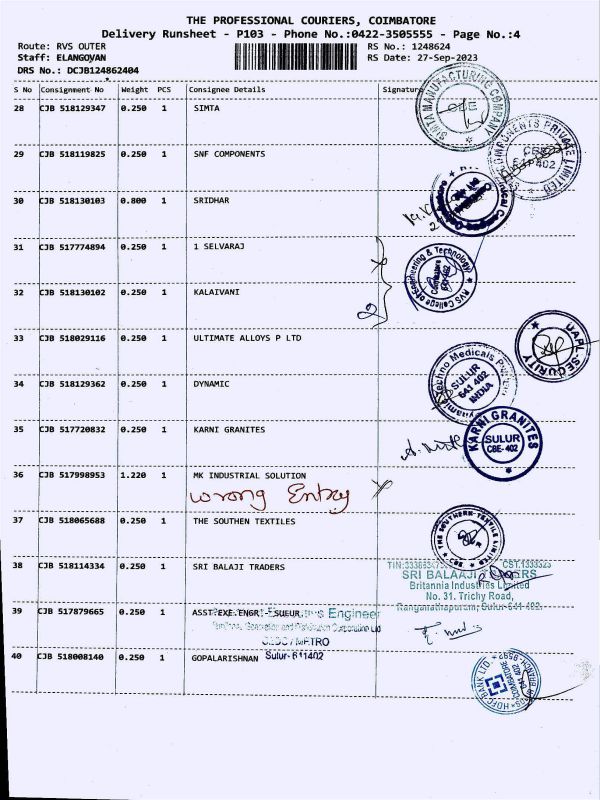 THE PROFESSIONAL COURIERS, COIMBATORE
Delivery Runsheet - P103 - Phone No.:0422-3505555 - Page No.:4
Route: RVS OUTER RS No.: 1248624
Staff: ELANGOVAN RS Date: 27-Sep-2023
DRS No.: DCJB124862404
S No Consignment No Weight PCS Consignee Details Signature
28 CJB 518129347 0.250 1 SIMTA
SIMTA MANUFACTURING COMPANY
29 CJB 518119825 0.250 1 SNF COMPONENTS
COMPONENTS PRIVATE LIMITED
30 CJB 518130103 0.800 1 SRIDHAR
31 CJB 517774894 0.250 1 1 SELVARAJ
RVS College of Engineering & Technology
32 CJB 518130102 0.250 1 KALAIVANI
33 CJB 518029116 0.250 1 ULTIMATE ALLOYS P LTD
UAPL-SECURITY
34 CJB 518129362 0.250 1 DYNAMIC
SULUR
641 402
INDIA
35 CJB 517720832 0.250 1 KARNI GRANITES
KARNI GRANITES
SULUR
CBE-402
36 CJB 517998953 1.220 1 MK INDUSTRIAL SOLUTION
wrong Entry
37 CJB 518065688 0.250 1 THE SOUTHEN TEXTILES
THE SOUTHERN TEXTILE LIMITED
CBE
38 CJB 518114334 0.250 1 SRI BALAJI TRADERS
SRI BALAAJI
Britannia Industries Limited
No. 31. Trichy Road,
Ranganathapuram, Sulur-641 402.
39 CJB 517879665 0.250 1 ASST EXE ENGR SULUR
Engineer
METRO
Sulur-641402
40 CJB 518008140 0.250 1 GOPALARISHNAN
HDFC BANK LTD